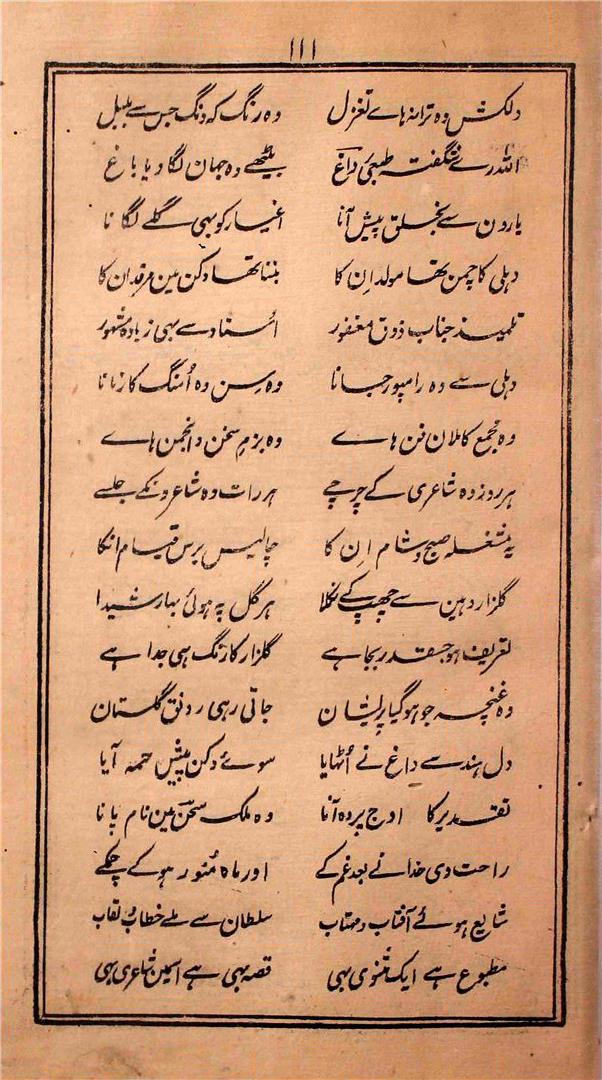 ۱۱۱
دلکش وہ ترانہ ہاے تغزل وہ رنگ کہ دنگ جس سے بلبل
اللہ رے شگفتہ طبعیٔ داغ بیٹھے وہ جہان لگا دیا باغ
یارون سے بخلق پیش آنا اغیار کو بہی گلے لگانا
دہلی کا چمن تھا مولد اِن کا بننا تھا دکن مین مرقد ان کا
تلمیذ جناب ذوق مغفور اُستاد سے بہی زیادہ مشہور
دہلی سے وہ رامپور جانا وہ سِن وہ اُمنگ کا زمانا
وہ مجمع کاملان فن ہاے وہ بزم سخن وہ انجمن ہاے
ہر روز وہ شاعری کے چرچے ہر رات وہ شاعرونکے جلسے
یہ مشغلہ صبح و شام اِن کا چالیس برس قیام انکا
گلزار وہین سے چھپ کے نکلا ہر گل پہ ہوئی بہار شیدا
تعریف ہو جسقدر بجا ہے گلزار کا رنگ ہی جدا ہے
وہ غنچہ جو ہوگیا پریشان جاتی رہی رونق گلستان
دل ہند سے داغ نے اُٹھایا سوئے دکن پیش خیمہ آیا
تقدیر کا اوج پر وہ آنا وہ ملک سخن مین نام پانا
راحت دی خدا نے بعد غم کے اور ماہ مُنور ہو کے چمکے
شایع ہوئے آفتاب و مہتاب سلطان سے ملے خطاب و القاب
مطبوع ہے ایک مثنوی بہی قصہ بہی ہے اسمین شاعری بہی